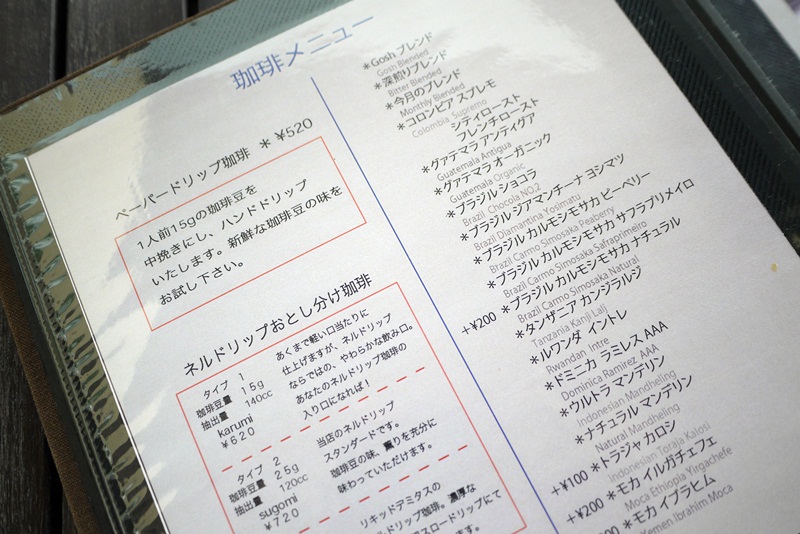 珈琲メニュー
ペーパードリップ珈琲 ＊ ¥520
1人前15gの珈琲豆を
中挽きにし、ハンドドリップ
いたします。新鮮な珈琲豆の味を
お試し下さい。
ネルドリップおとし分け珈琲
タイプ 1
珈琲豆量 15g
抽出量 140cc
karumi
¥620
あくまで軽い口当たりに
仕上げますが、ネルドリップ
ならではの、やわらかな飲み口。
あなたのネルドリップ珈琲の
入り口になれば!
タイプ 2
珈琲豆量 25g
抽出量 120cc
sugomi
¥720
当店のネルドリップ
スタンダードです。
珈琲豆の味、薫りを充分に
味わっていただけます。
リキッドデミタスの
ドリップ珈琲。濃厚な
スロードリップにて
ます。
＊Gosh ブレンド
Gosh Blended
＊深煎りブレンド
Bitter Blended
＊今月のブレンド
Monthly Blended
＊コロンビア スプレモ
Colombia Supremo
シティロースト
フレンチロースト
＊グァテマラ アンティグア
Guatemala Antigua
＊グァテマラ オーガニック
Guatemala Organic
＊ブラジル ショコラ
Brazil Chocola NO,2
＊ブラジル ジアマンチーナ ヨシマツ
Brazil Diamantina Yosimatu
＊ブラジル カルモシモサカ ピーベリー
Brazil Carmo Simosaka Peaberry
＊ブラジル カルモシモサカ サフラプリメイロ
Brazil Carmo Simosaka Safraprimeiro
+¥200 ＊ブラジル カルモシモサカ ナチュラル
Brazil Carmo Simosaka Natural
＊タンザニア カンジラルジ
Tanzania Kanji Lalji
＊ルワンダ イントレ
Rwandan Intre
＊ドミニカ ラミレス AAA
Dominica Ramirez, AAA
＊ウルトラ マンデリン
Indonesian Mandheling
＊ナチュラル マンデリン
Natural Mandheling
+¥100 ＊トラジャ カロシ
Indonesian Toraja Kalosi
+¥200 ＊モカ イルガチェフェ
Moca Ethiopia Yirgachefe
＊モカ イブラヒム
Yemen Ibrahim Moca